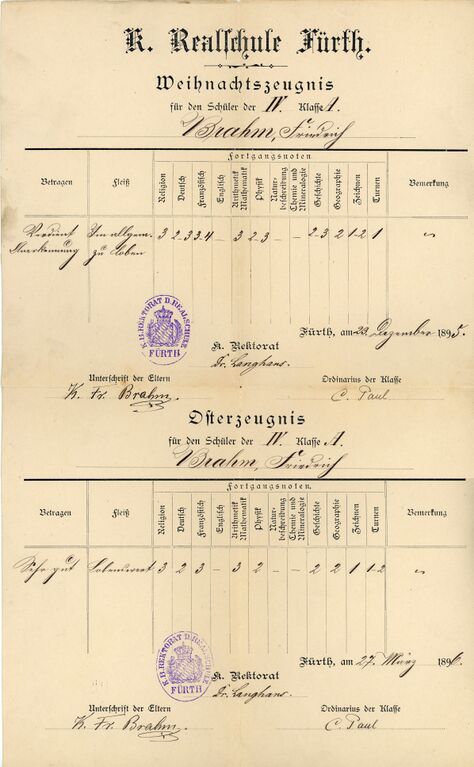 K. Realschule Fürth.
Weihnachtszeugnis
für den Schüler der IV. Klasse A.
Brahm, Friedrich
Fortgangsnoten
Betragen Fleiß Religion Deutsch Französisch Englisch Arithmetik Mathematik Physik Naturbeschreibung Chemie und Mineralogie Geschichte Geographie Zeichnen Turnen Bemerkung
Verdient Im allgem. 3 2-3 3-4 – 3 2-3 – – 2-3 2 1-2 1
Anerkennung zu loben
K.B. REKTORAT D. REALSCHULE FÜRTH
Fürth, am 23. Dezember 1895.
K. Rektorat
Dr. Langhans.
Unterschrift der Eltern Ordinarius der Klasse
K. Fr. Brahm. C. Paul
Osterzeugnis
für den Schüler der IV. Klasse A.
Brahm, Friedrich
Fortgangsnoten.
Betragen Fleiß Religion Deutsch Französisch Englisch Arithmetik Mathematik Physik Naturbeschreibung Chemie und Mineralogie Geschichte Geographie Zeichnen Turnen Bemerkung
Sehr gut Lobenswert 3 2 3 – 3 2 – – 2 2 1 1-2
K.B. REKTORAT D. REALSCHULE FÜRTH
Fürth, am 27. März 1896.
K. Rektorat
Dr. Langhans.
Unterschrift der Eltern Ordinarius der Klasse
K. Fr. Brahm. C. Paul